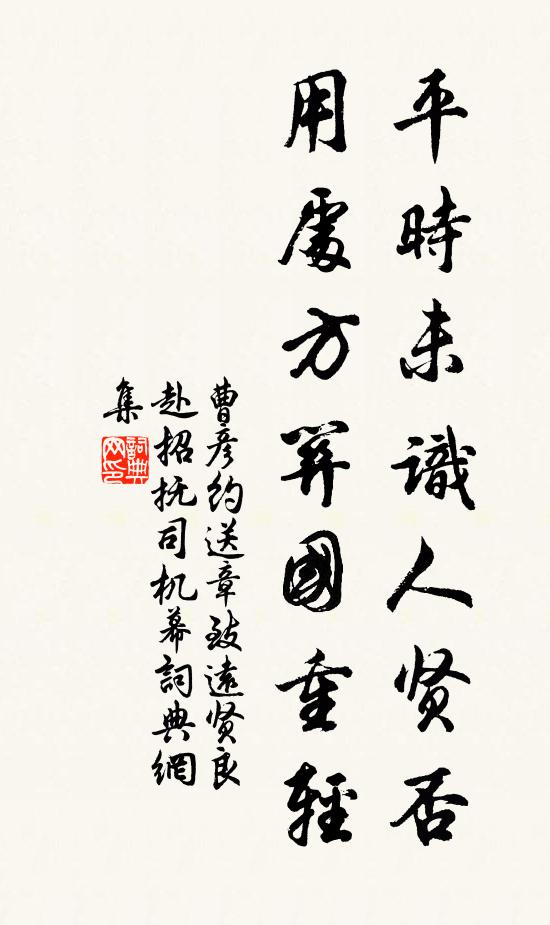 平時未識人贤否
用處方筭國重輕
曹彦约送章致遠贤良
赴招抚司机幕詞典網
集
詞典
网印